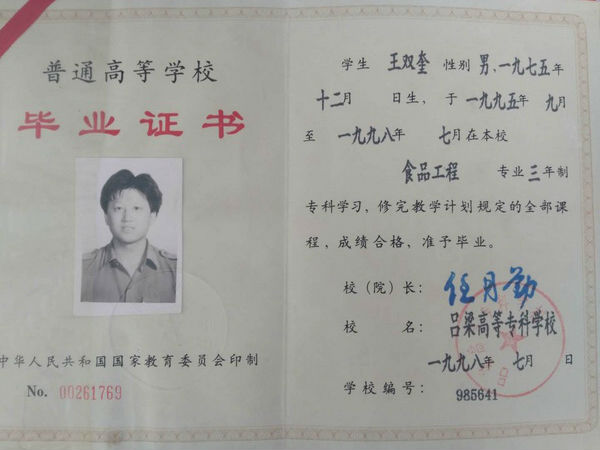 普通高等学校
毕业证书
中华人民共和国国家教育委员会印制
No. 00261769
学生 王双奎 性别 男、一九七五年
十二月 日生，于一九九五年 九月
至 一九九八年 七月在本校
食品工程 专业三年制
专科学习，修完教学计划规定的全部课
程，成绩合格，准予毕业。
校（院）长：任月勤
校 名：吕梁高等专科学校
一九九八年 七月 日
学校编号：985641